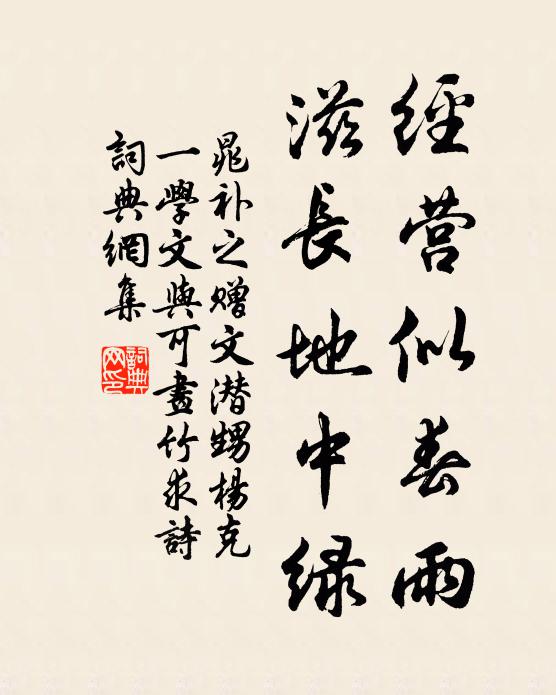 經营似春雨
滋長地中绿
晁补之赠文潜甥楊克
一學文與可畫竹求詩
詞典網集
詞典
网印